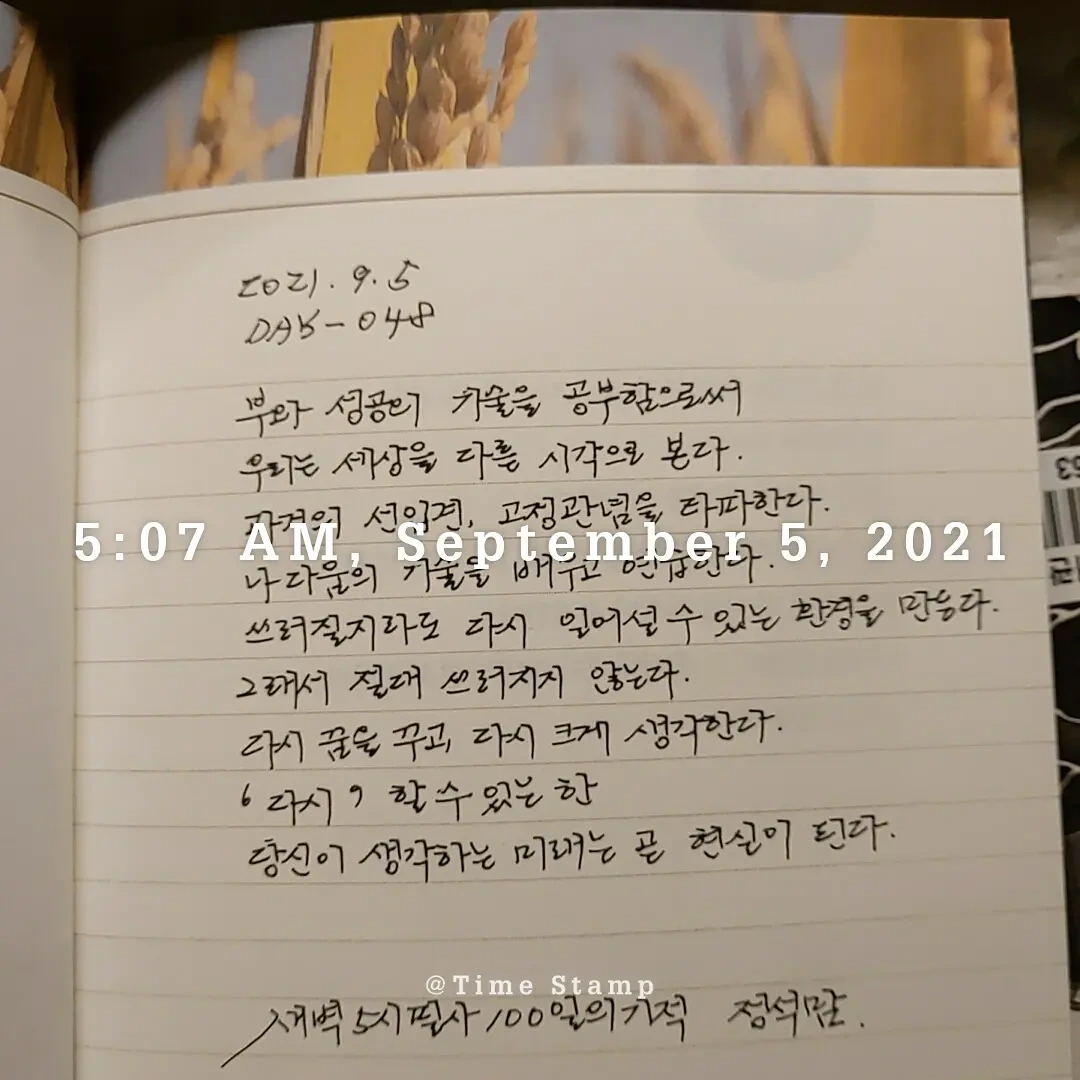 2021. 9. 5
DAY-048
부와 성공의 기술을 공부함으로써
우리는 세상을 다른 시각으로 본다.
과거의 선입견, 고정관념을 타파한다.
5:07 AM, September 5, 2021
나다움의 기술을 배우고 연습한다.
쓰러질지라도 다시 일어설 수 있는 환경을 만든다.
그래서 절대 쓰러지지 않는다.
다시 꿈을 꾸고, 다시 크게 생각한다.
'다시' 할 수 있는 한
당신이 생각하는 미래는 곧 현실이 된다.
@Time Stamp
새벽 5시 필사 100일의 기적 정석맘.